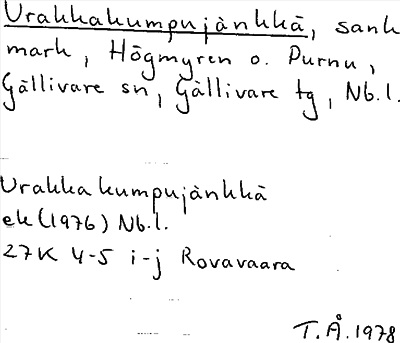 Urakkakumpujänkkä, sank
mark, Högmyren o. Purnu,
Gällivare sn, Gällivare tg, Nb.l.
Urakkakumpujänkkä
ek (1976) Nb.l.
27K 4-5 i-j Rovavaara
T.Å. 1978